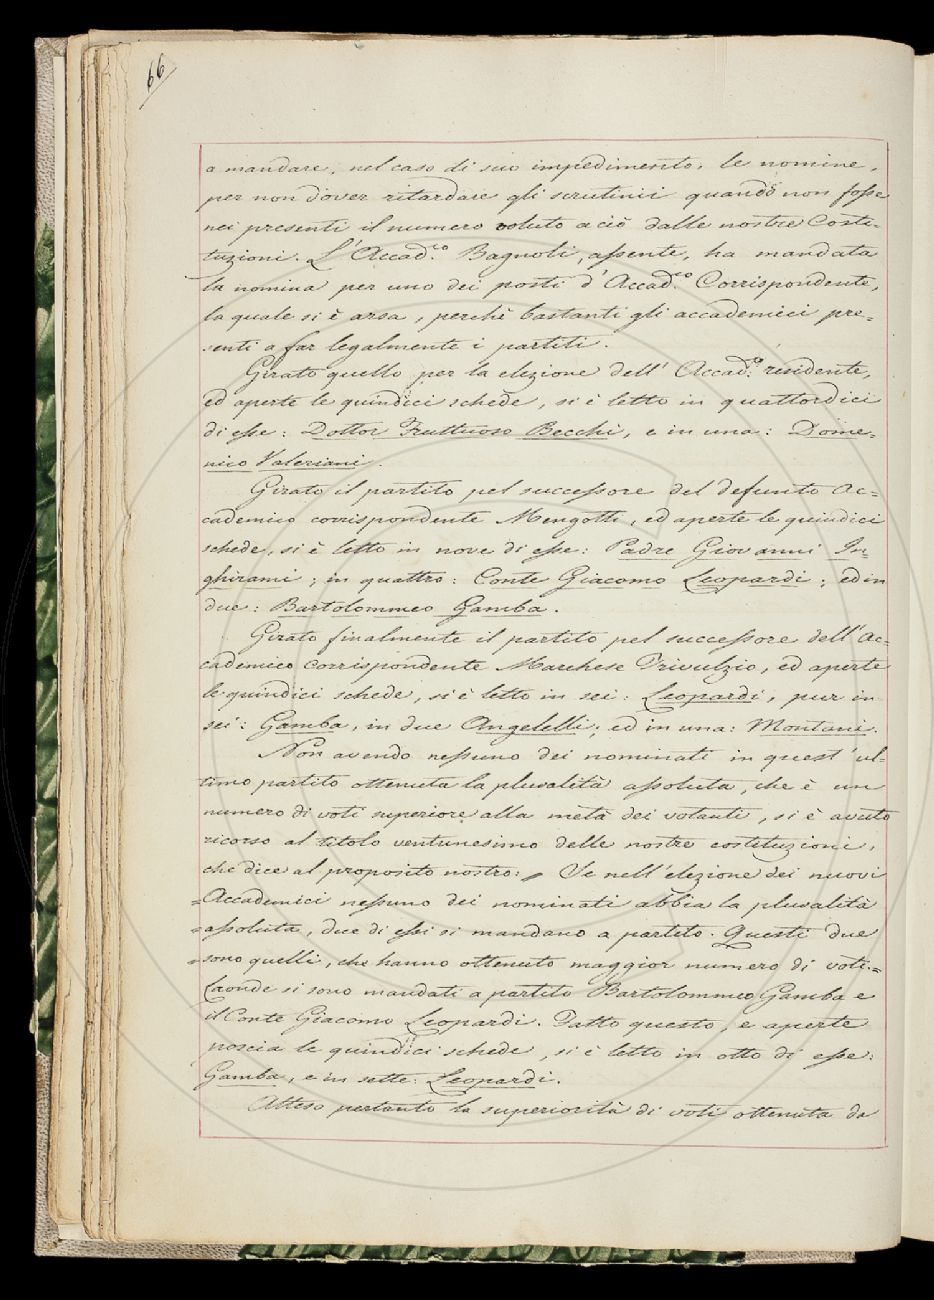 66
a mandare, nel caso di suo impedimento, le nomine,
per non dover ritardare gli scrutinii quando non fosse
nei presenti il numero voluto a ciò dalle nostre Costi-
tuzioni. L'Accad.co Bagnoli, assente, ha mandata
la nomina per uno dei posti d'Accad.co Corrispondente,
la quale si è arsa, perchè bastanti gli accademici pre-
senti a far legalmente i partiti.
Girato quello per la elezione dell'Accad.o residente,
ed aperte le quindici schede, si è letto in quattordici
di esse: Dottor Fruttuoso Becchi, e in una: Dome-
nico Valeriani.
Girato il partito pel successore del defunto Ac-
cademico corrispondente Mengotti, ed aperte le quindici
schede, si è letto in nove di esse: Padre Giovanni In-
ghirami; in quattro: Conte Giacomo Leopardi; ed in
due: Bartolommeo Gamba.
Girato finalmente il partito pel successore dell'Ac-
cademico corrispondente Marchese Trivulzio, ed aperte
le quindici schede, si è letto in sei: Leopardi, pur in
sei: Gamba, in due Angelelli, ed in una: Montani.
Non avendo nessuno dei nominati in quest'ul-
timo partito ottenuta la pluralità assoluta, che è un
numero di voti superiore alla metà dei votanti, si è avuto
ricorso al titolo ventunesimo delle nostre costituzioni,
che dice al proposito nostro: „ Se nell'elezione dei nuovi
=Accademici nessuno dei nominati abbia la pluralità
=assoluta, due di essi si mandano a partito. Questi due
=sono quelli, che hanno ottenuto maggior numero di voti.=
Laonde si sono mandati a partito Bartolommeo Gamba e
il Conte Giacomo Leopardi. Fatto questo, e aperte
poscia le quindici schede, si è letto in otto di esse:
Gamba, e in sette: Leopardi.
Atteso pertanto la superiorità di voti ottenuta da